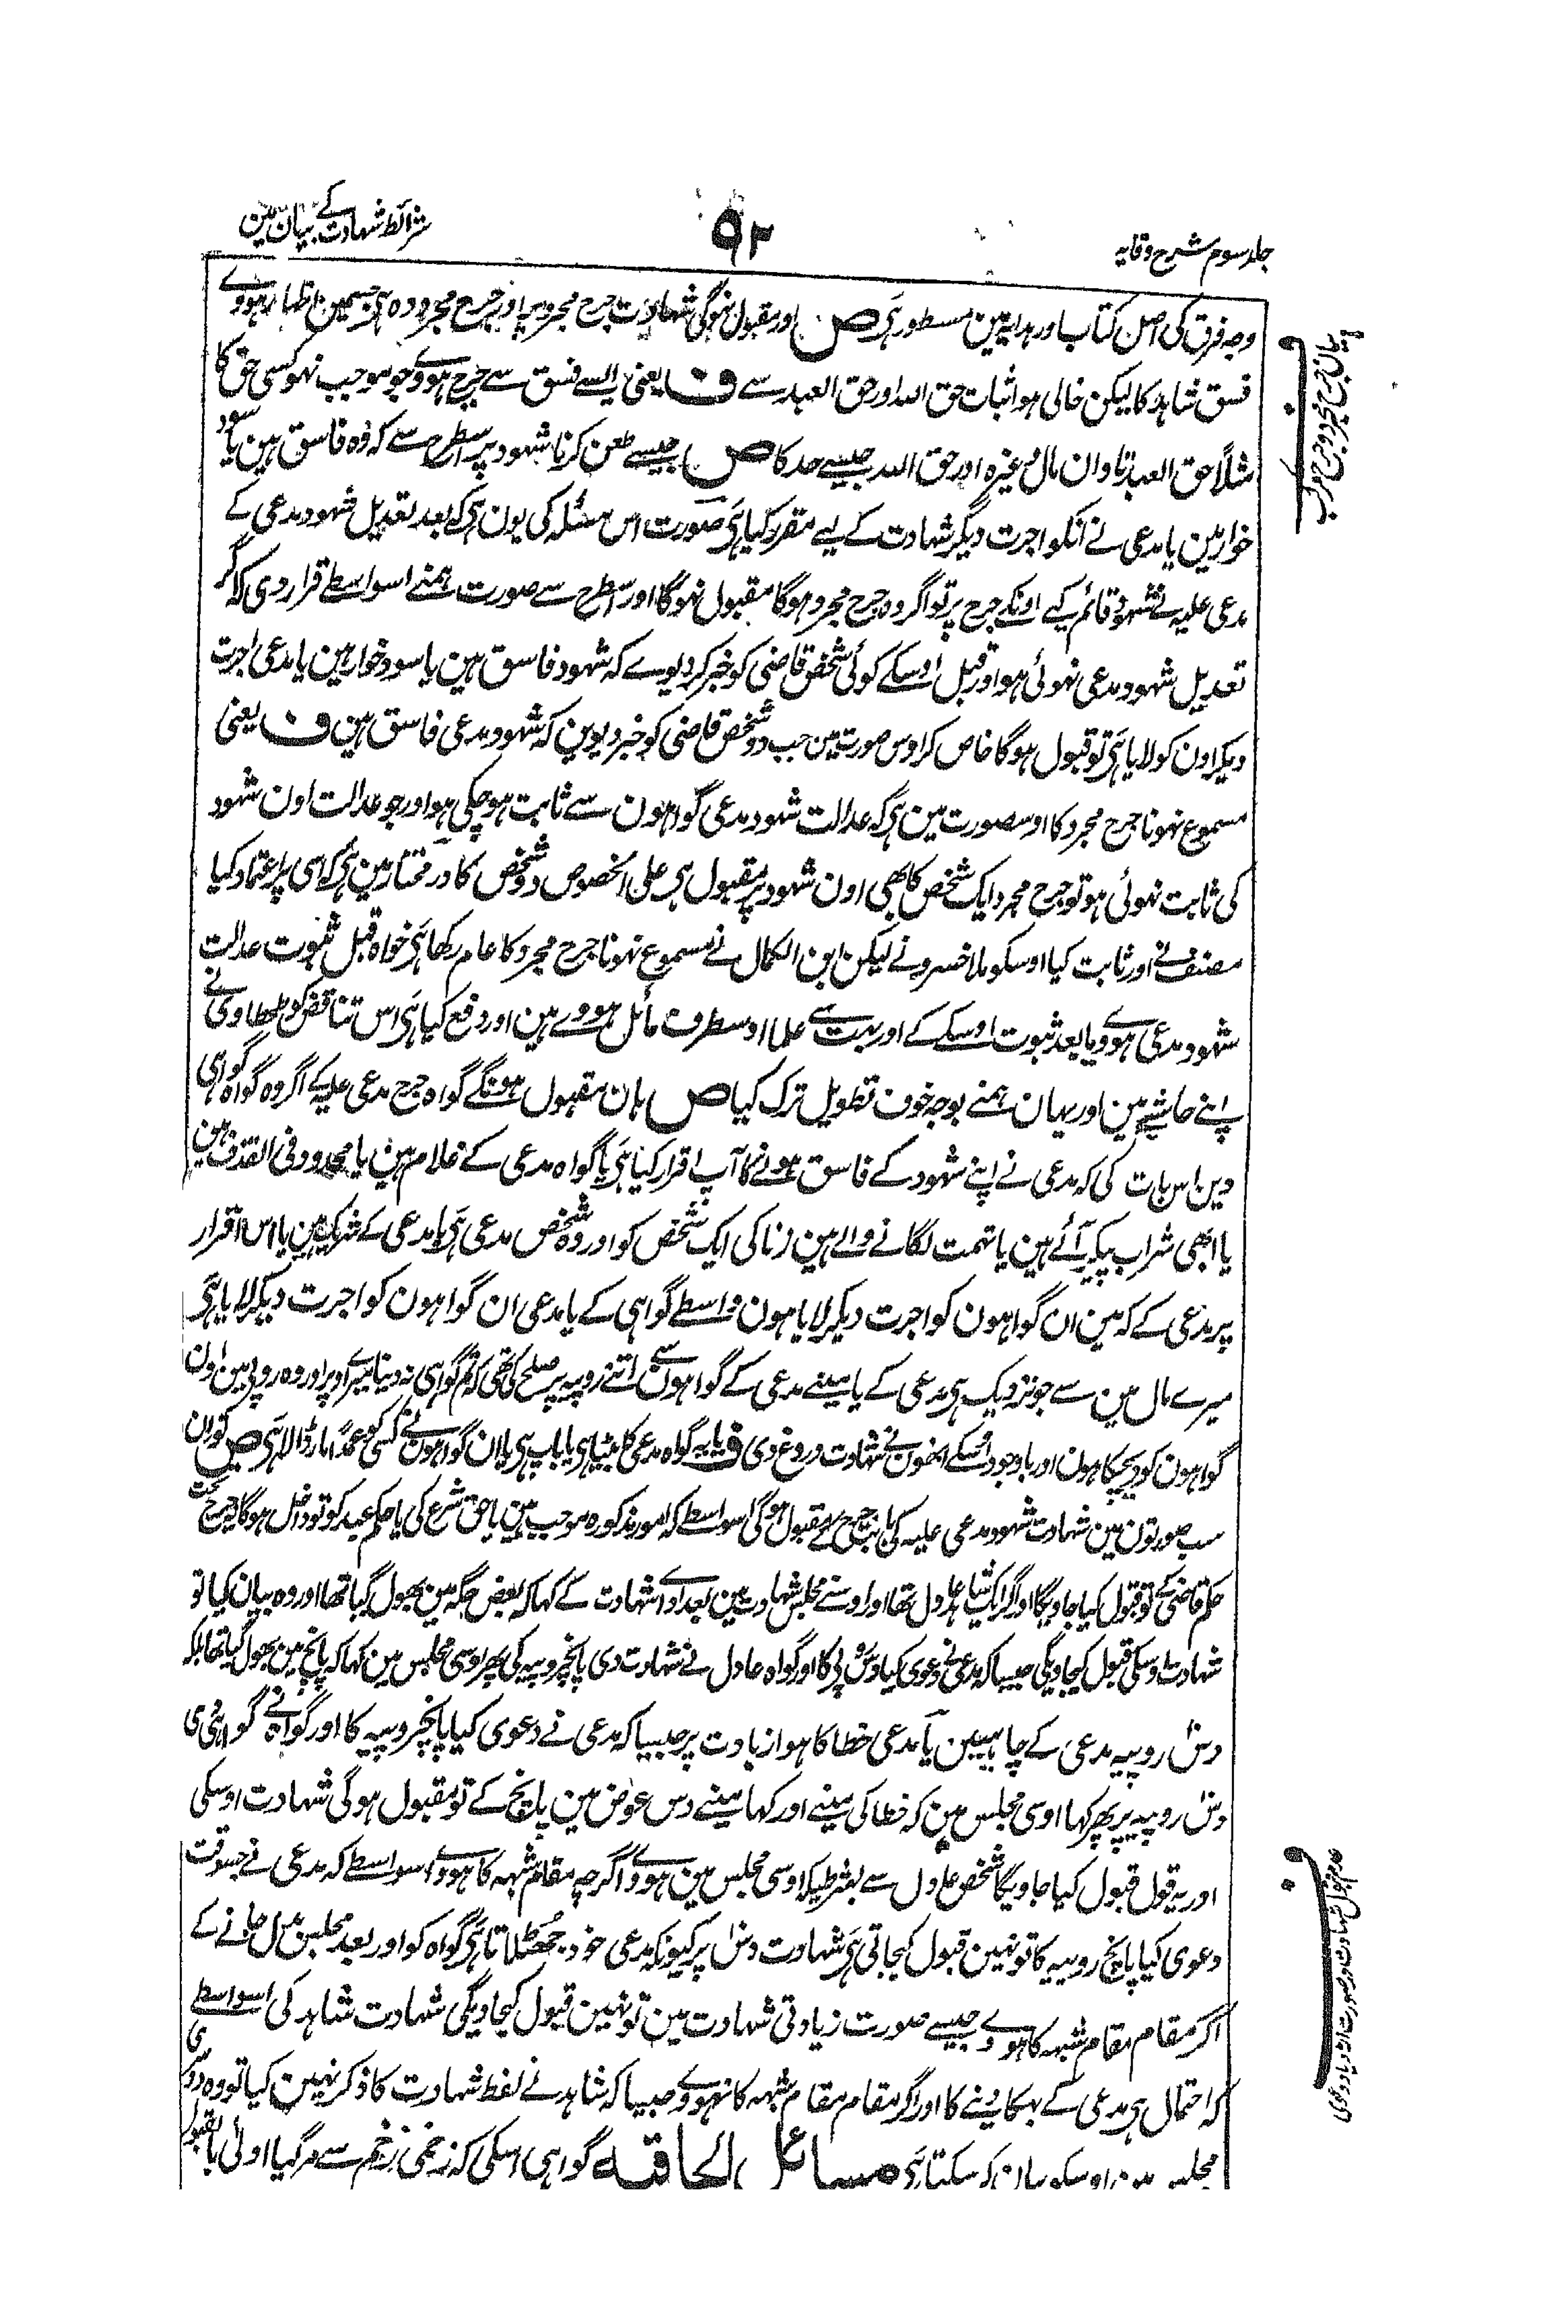 جلد سوم شرح وقایہ
۵۲
شرائط شہادت کے بیان مین
وجہ فرق کی اصل کتاب اور ہدایہ مین مسطور ہی ص اور مقبول نہوگی شہادت جرح مجرد پر اور جرح مجرد وہ ہی جسمین اظہار ہووے
فسق شاہد کا لیکن خالی ہو اثبات حق اللہ اور حق العبد سے ف یعنی ایسے فسق سے جرح ہووے جو موجب نہو کسی حق کا
مثلاً حق العبد تاوان مال وغیرہ اور حق اللہ جیسے حد کا ص جیسے طعن کرنا شہود پر اسطرح سے کہ وہ فاسق ہین یا سود
خوار ہین یا مدعی نے انکو اجرت دیکر شہادت کے لیے مقرر کیا ہی صورت اس مسئلہ کی یون ہی کہ بعد تعدیل شہود مدعی کے
مدعی علیہ نے شہود قائم کیے اونکے جرح پر تو اگر وہ جرح مجرد ہوگا مقبول نہوگا اور اسطرح سے صورت ہمنے اسواسطے قرار دی کہ اگر
تعدیل شہود مدعی نہوئی ہو اور قبل اوسکے کوئی شخص قاضی کو خبر کر دیوے کہ شہود فاسق ہین یا سود خوار ہین یا مدعی اجرت
دیکر اون کو لایا ہی تو قبول ہوگا خاص کر اوس صورت مین جب دو شخص قاضی کو خبر دیوین کہ شہود مدعی فاسق ہین ف یعنی
مسموع نہونا جرح مجرد کا اوسصورت مین ہی کہ عدالت شہود مدعی گواہون سے ثابت ہو چکی ہو اور جو عدالت اون شہود
کی ثابت نہوئی ہو تو جرح مجرد ایک شخص کا بھی اون شہود پر مقبول ہی علی الخصوص دو شخص کا در مختار مین ہی کہ اسی پر اعتماد کیا
مصنف نے اور ثابت کیا اوسکو ملا خسرو نے لیکن ابن الکمال نے مسموع نہونا جرح مجرد کا عام رکھا ہی خواہ قبل ثبوت عدالت
شہود مدعی ہووے یا بعد ثبوت اوسکے کے اور بہت سے علما اوسطرف مائل ہووے ہین اور دفع کیا ہی اس تناقض کو طحطاوی نے
اپنے حاشیے مین اور یہان ہمنے بوجہ خوف تطویل ترک کیا ص ہان مقبول ہونگے گواہ جرح مدعی علیہ کے اگر وہ گواہ گواہی
دین اس بات کی کہ مدعی نے اپنے شہود کے فاسق ہونے کا آپ اقرار کیا ہی یا گواہ مدعی کے غلام ہین یا محدود فی القذف ہین
یا ابھی شراب پیکر آئے ہین یا تہمت لگانے والے ہین زنا کی ایک شخص کو اور وہ شخص مدعی ہی یا مدعی کے شریک ہین یا اس اقرار
پر مدعی کے کہ مین ان گواہون کو اجرت دیکر لایا ہون واسطے گواہی کے یا مدعی ان گواہون کو اجرت دیکر لایا ہی
میرے مال مین سے جو نزدیک ہی مدعی کے یا مینے مدعی کے گواہون سے اتنے روپیہ پر صلح کی تھی کہ تم گواہی نہ دینا میرے اوپر اور وہ روپے مین اون
گواہون کو دیچکا ہون اور باوجود اسکے انھون نے شہادت دروغ دی ف یا یہ گواہ مدعی کا بیٹا ہی یا باپ ہی یا ان گواہون نے کسی کو عمدًا مار ڈالا ہی ص تو ان
سب صورتون مین شہادت شہود مدعی علیہ کی بابت جرح کے مقبول ہوگی اسواسطے کہ امور مذکورہ موجب ہین یا حق شرع کی یا حکم عبد کو تو داخل ہوگا جرح تحت
حکم قاضی کے تو قبول کیا جاویگا اور اگر ایک شاہد عادل تھا اور اوسنے مجلس شہادت مین بعد اداے شہادت کے کہا کہ بعض جگہ مین بھول گیا تھا اور وہ بیان کیا تو
شہادت اوسکی قبول کیجاویگی جیسا کہ مدعی نے دعوی کیا دس روپیے کا اور گواہ عادل نے شہادت دی پانچ روپیہ کی پھر اوسی مجلس مین کہا کہ پانچ مین بھول گیا تھا بلکہ
دس روپیہ مدعی کے چاہیین یا مدعی خطا کا ہوا زیادت پر جیسا کہ مدعی نے دعوی کیا پانچ روپیہ کا اور گواہ نے گواہی دی
دس روپیہ پر پھر کہا اوسی مجلس مین کہ خطا کی مینے اور کہا مینے دس عوض مین پانچ کے تو مقبول ہوگی شہادت اوسکی
اور یہ قول قبول کیا جاویگا شخص عادل سے بشرطیکہ اوسی مجلس مین ہووے اگرچہ مقام شبہہ کا ہووے اسواسطے کہ مدعی نے جسوقت
دعوی کیا پانچ روپیہ کا تو نہین قبول کیجاتی ہی شہادت دس پر کیونکہ مدعی خود جھٹلاتا ہی گواہ کو اور بعد مجلس بدل جانے کے
اگر مقام مقام شبہہ کا ہووے جیسے صورت زیادتی شہادت مین تو نہین قبول کیجاویگی شہادت شاہد کی اسواسطے
کہ احتمال ہی مدعی کے بہکا دینے کا اور اگر مقام مقام شبہہ کا نہووے جیسا کہ شاہد نے لفظ شہادت کا ذکر نہین کیا تو وہ دوسری
مجلس مین اوسکو بیان کر سکتا ہی مسائل الحاقیہ گواہی اسکی کہ زخمی زخم سے مر گیا اولی بالقبول
ف
ف